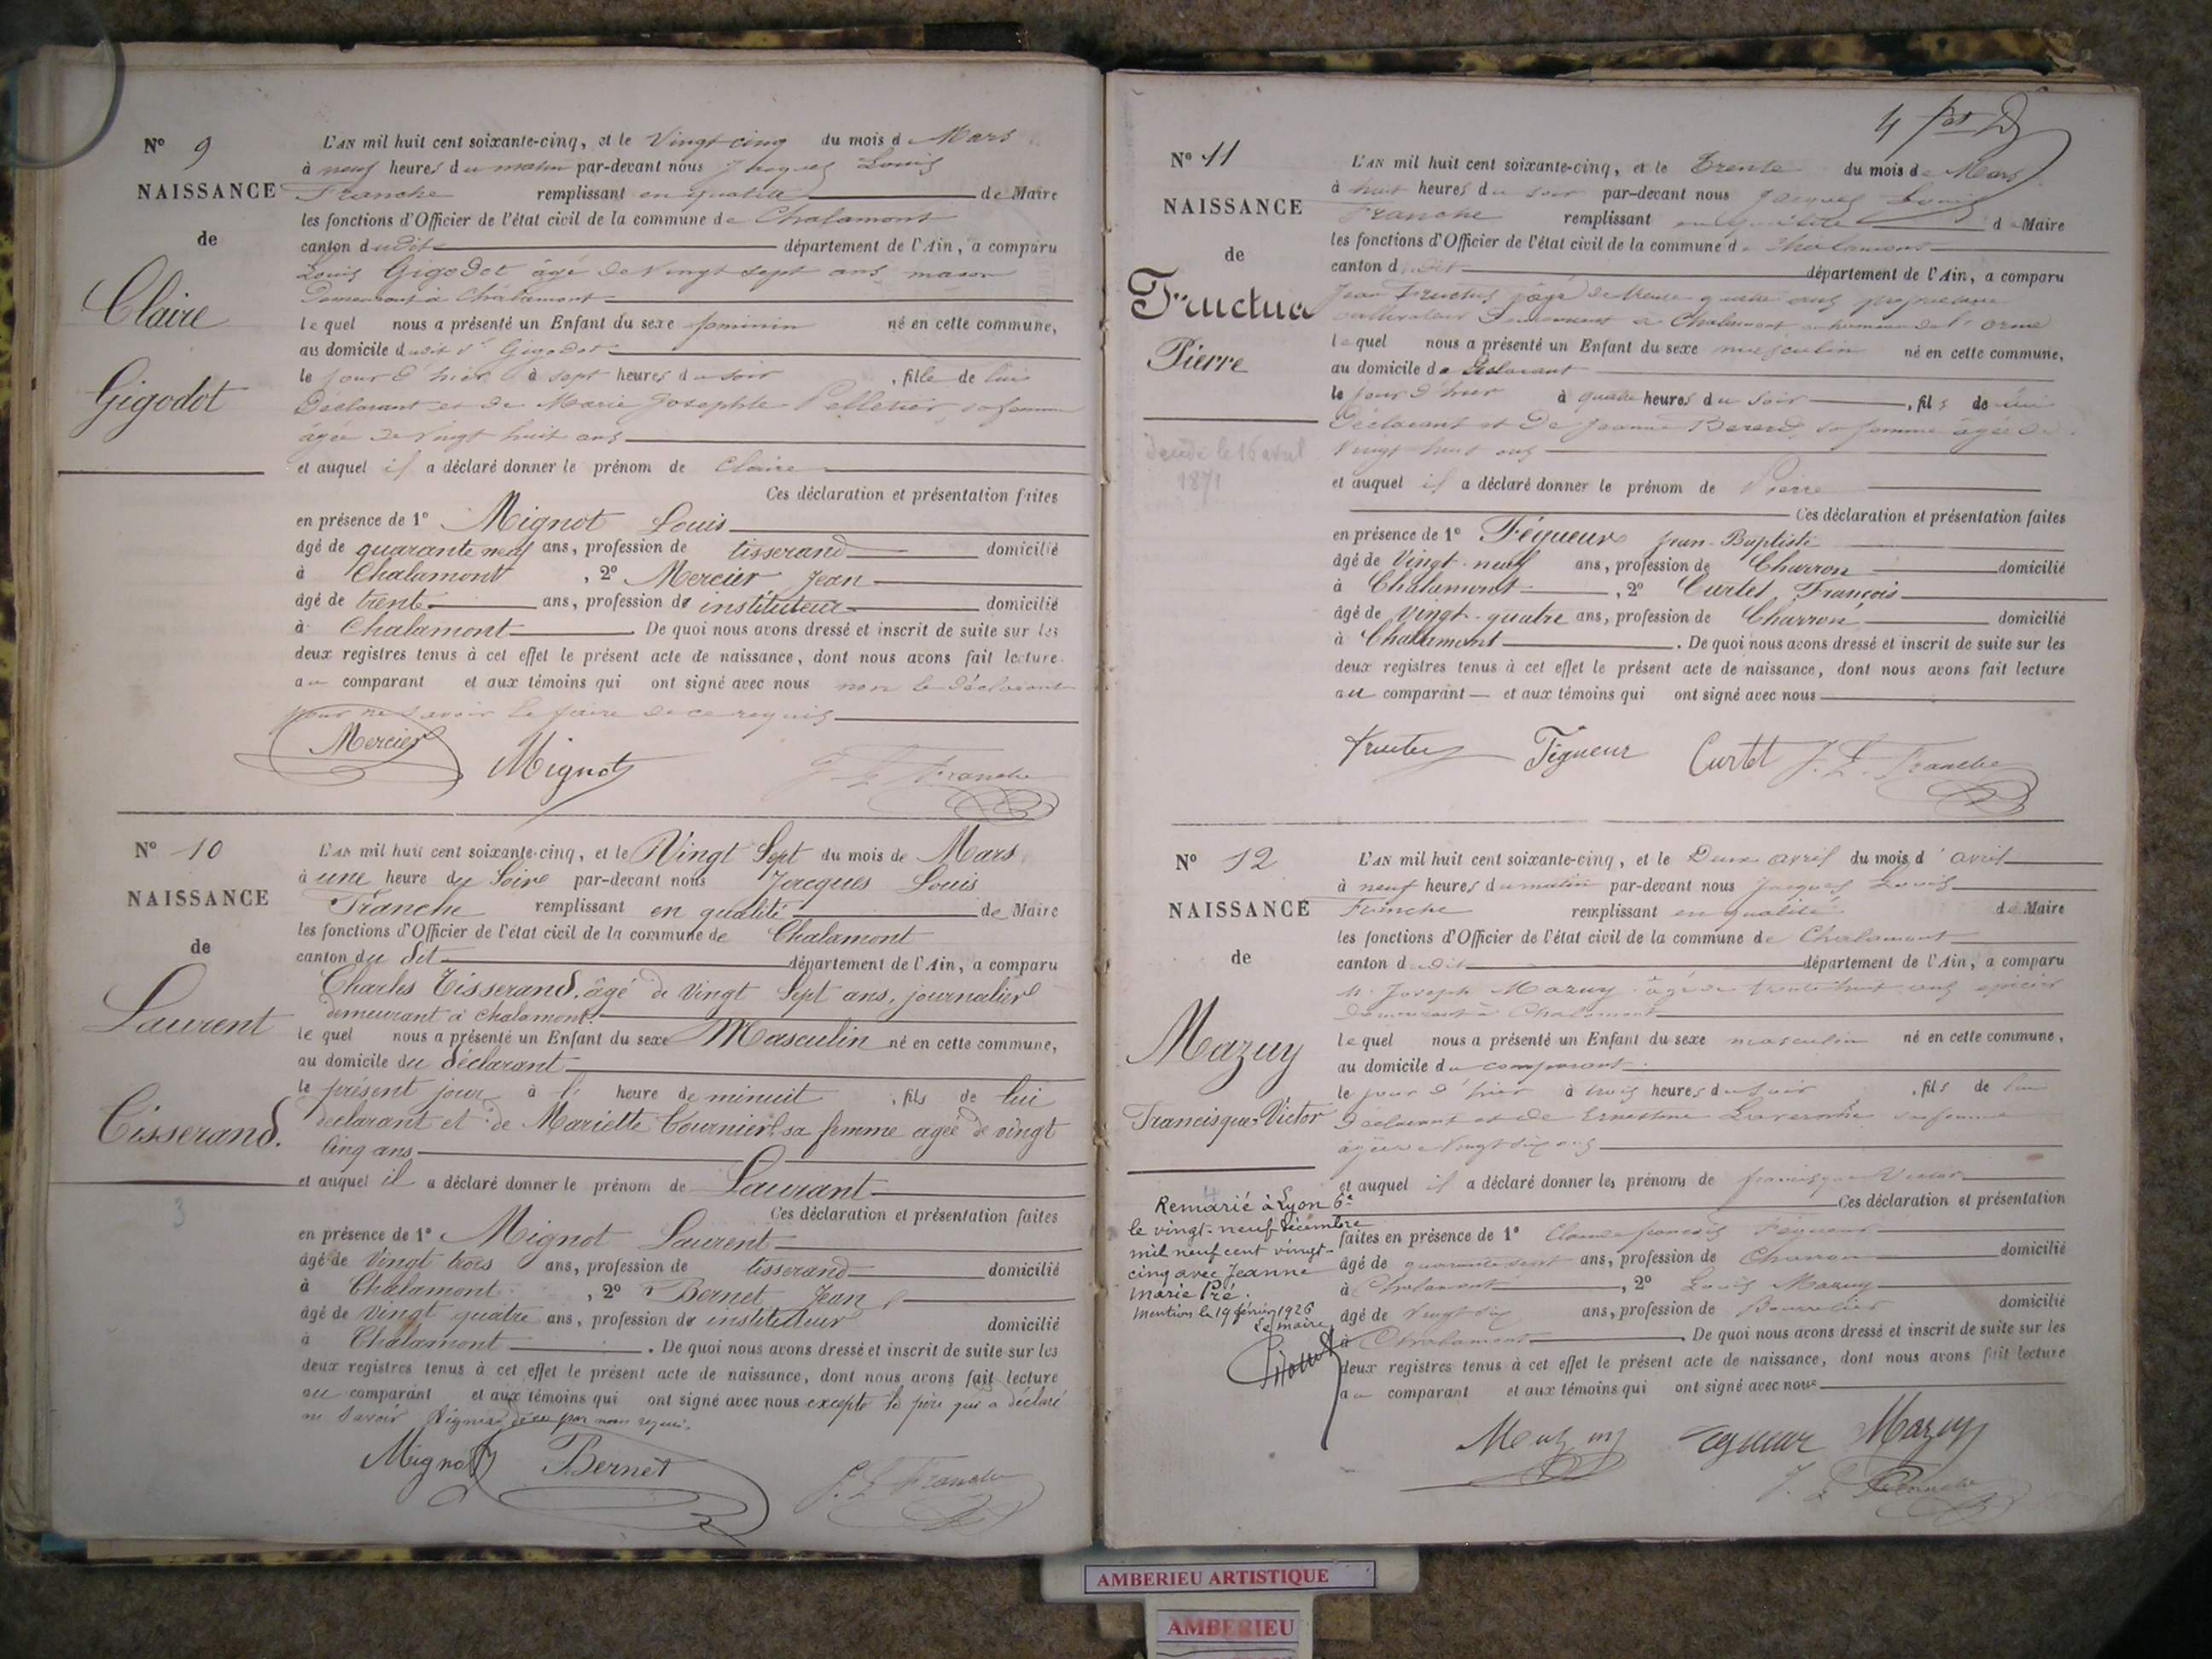 N° 9
NAISSANCE
de
Claire
Gigodot
L'AN mil huit cent soixante-cinq, et le Vingt cinq du mois de Mars
à neuf heures du matin par-devant nous Jacques Louis
Franche remplissant en qualité de Maire
les fonctions d'Officier de l'état civil de la commune de Chalamont
canton dudit département de l'Ain, a comparu
Louis Gigodot âgé de Vingt sept ans, maçon
Demeurant à Chalamont
lequel nous a présenté un Enfant du sexe féminin né en cette commune,
au domicile dudit Sr Gigodot
le jour d'hier à sept heures du soir, fille de lui
Déclarant et de Marie Josephte Pelletier, sa femme
âgée de Vingt huit ans
et auquel il a déclaré donner le prénom de Claire
Ces déclaration et présentation faites
en présence de 1° Mignot Louis
âgé de quarante neuf ans, profession de tisserand domicilié
à Chalamont, 2° Mercier Jean
âgé de trente ans, profession de instituteur domicilié
à Chalamont. De quoi nous avons dressé et inscrit de suite sur les
deux registres tenus à cet effet le présent acte de naissance, dont nous avons fait lecture
au comparant et aux témoins qui ont signé avec nous non le déclarant
pour ne savoir le faire de ce requis
Mercier Mignot J. L. Franche
N° 10
NAISSANCE
de
Laurent
Tisserand.
3
L'AN mil huit cent soixante-cinq, et le Vingt Sept du mois de Mars
à une heure du Soir par-devant nous Jacques Louis
Franche remplissant en qualité de Maire
les fonctions d'Officier de l'état civil de la commune de Chalamont
canton du dit département de l'Ain, a comparu
Charles Tisserand, âgé de Vingt Sept ans, journalier
demeurant à Chalamont.
lequel nous a présenté un Enfant du sexe Masculin né en cette commune,
au domicile du déclarant
le présent jour à l' heure de minuit, fils de lui
declarant et de Mariette Tournier sa femme agée de vingt
Cinq ans
et auquel il a déclaré donner le prénom de Laurant
Ces déclaration et présentation faites
en présence de 1° Mignot Laurent
âgé de Vingt trois ans, profession de tisserand domicilié
à Chalamont, 2° Bernet Jean
âgé de Vingt quatre ans, profession de instituteur domicilié
à Chalamont. De quoi nous avons dressé et inscrit de suite sur les
deux registres tenus à cet effet le présent acte de naissance, dont nous avons fait lecture
au comparant et aux témoins qui ont signé avec nous excepté le père qui a déclaré
ne savoir Signer de ce par nous requis.
Mignot Bernet J. L. Franche
N° 11
NAISSANCE
de
Fructus
Pierre
décédé le 16 avril
1871
L'AN mil huit cent soixante-cinq, et le Trente du mois de Mars
à huit heures du soir par-devant nous Jacques Louis
Franche remplissant en qualité de Maire
les fonctions d'Officier de l'état civil de la commune de Chalamont
canton dudit département de l'Ain, a comparu
Jean Fructus, âgé de trente quatre ans, propriétaire
cultivateur Demeurant à Chalamont au hameau de l'orme
lequel nous a présenté un Enfant du sexe masculin né en cette commune,
au domicile du déclarant
le jour d'hier à quatre heures du Soir, fils de lui
Déclarant et De Jeanne Berard, sa femme agée de
Vingt huit ans
et auquel il a déclaré donner le prénom de Pierre
Ces déclaration et présentation faites
en présence de 1° Féqueur Jean-Baptiste
âgé de Vingt-neuf ans, profession de Charron domicilié
à Chalamont, 2° Curtet François
âgé de vingt-quatre ans, profession de Charron domicilié
à Chalamont. De quoi nous avons dressé et inscrit de suite sur les
deux registres tenus à cet effet le présent acte de naissance, dont nous avons fait lecture
au comparant et aux témoins qui ont signé avec nous
Fructus Féqueur Curtet J. L. Franche
N° 12
NAISSANCE
de
Mazuy
Francisque-Victor
Remarié à Lyon 6e
le vingt-neuf décembre
mil neuf cent vingt-
cinq avec Jeanne
Marie Pré.
Mention le 19 février 1926
Le maire,
L'AN mil huit cent soixante-cinq, et le Deux avril du mois d'avril
à neuf heures du matin par-devant nous Jacques Louis
Franche remplissant en qualité de Maire
les fonctions d'Officier de l'état civil de la commune de Chalamont
canton dudit département de l'Ain, a comparu
M. Joseph Mazuy âgé de trente huit ans, épicier
Demeurant à Chalamont
lequel nous a présenté un Enfant du sexe masculin né en cette commune,
au domicile du comparant
le jour d'hier à trois heures du soir, fils de lui
Déclarant et de Ernestine sa femme
âgée de Vingt six ans
et auquel il a déclaré donner les prénoms de francisque Victor
Ces déclaration et présentation
faites en présence de 1° Claude françois Féqueur
âgé de quarante sept ans, profession de Charron domicilié
à Chalamont, 2° Louis Mazuy
âgé de Vingt six ans, profession de Bourrelier domicilié
à Chalamont. De quoi nous avons dressé et inscrit de suite sur les
deux registres tenus à cet effet le présent acte de naissance, dont nous avons fait lecture
au comparant et aux témoins qui ont signé avec nous
Mazuy Féqueur Mazuy
J. L. Franche
AMBERIEU ARTISTIQUE
AMBERIEU